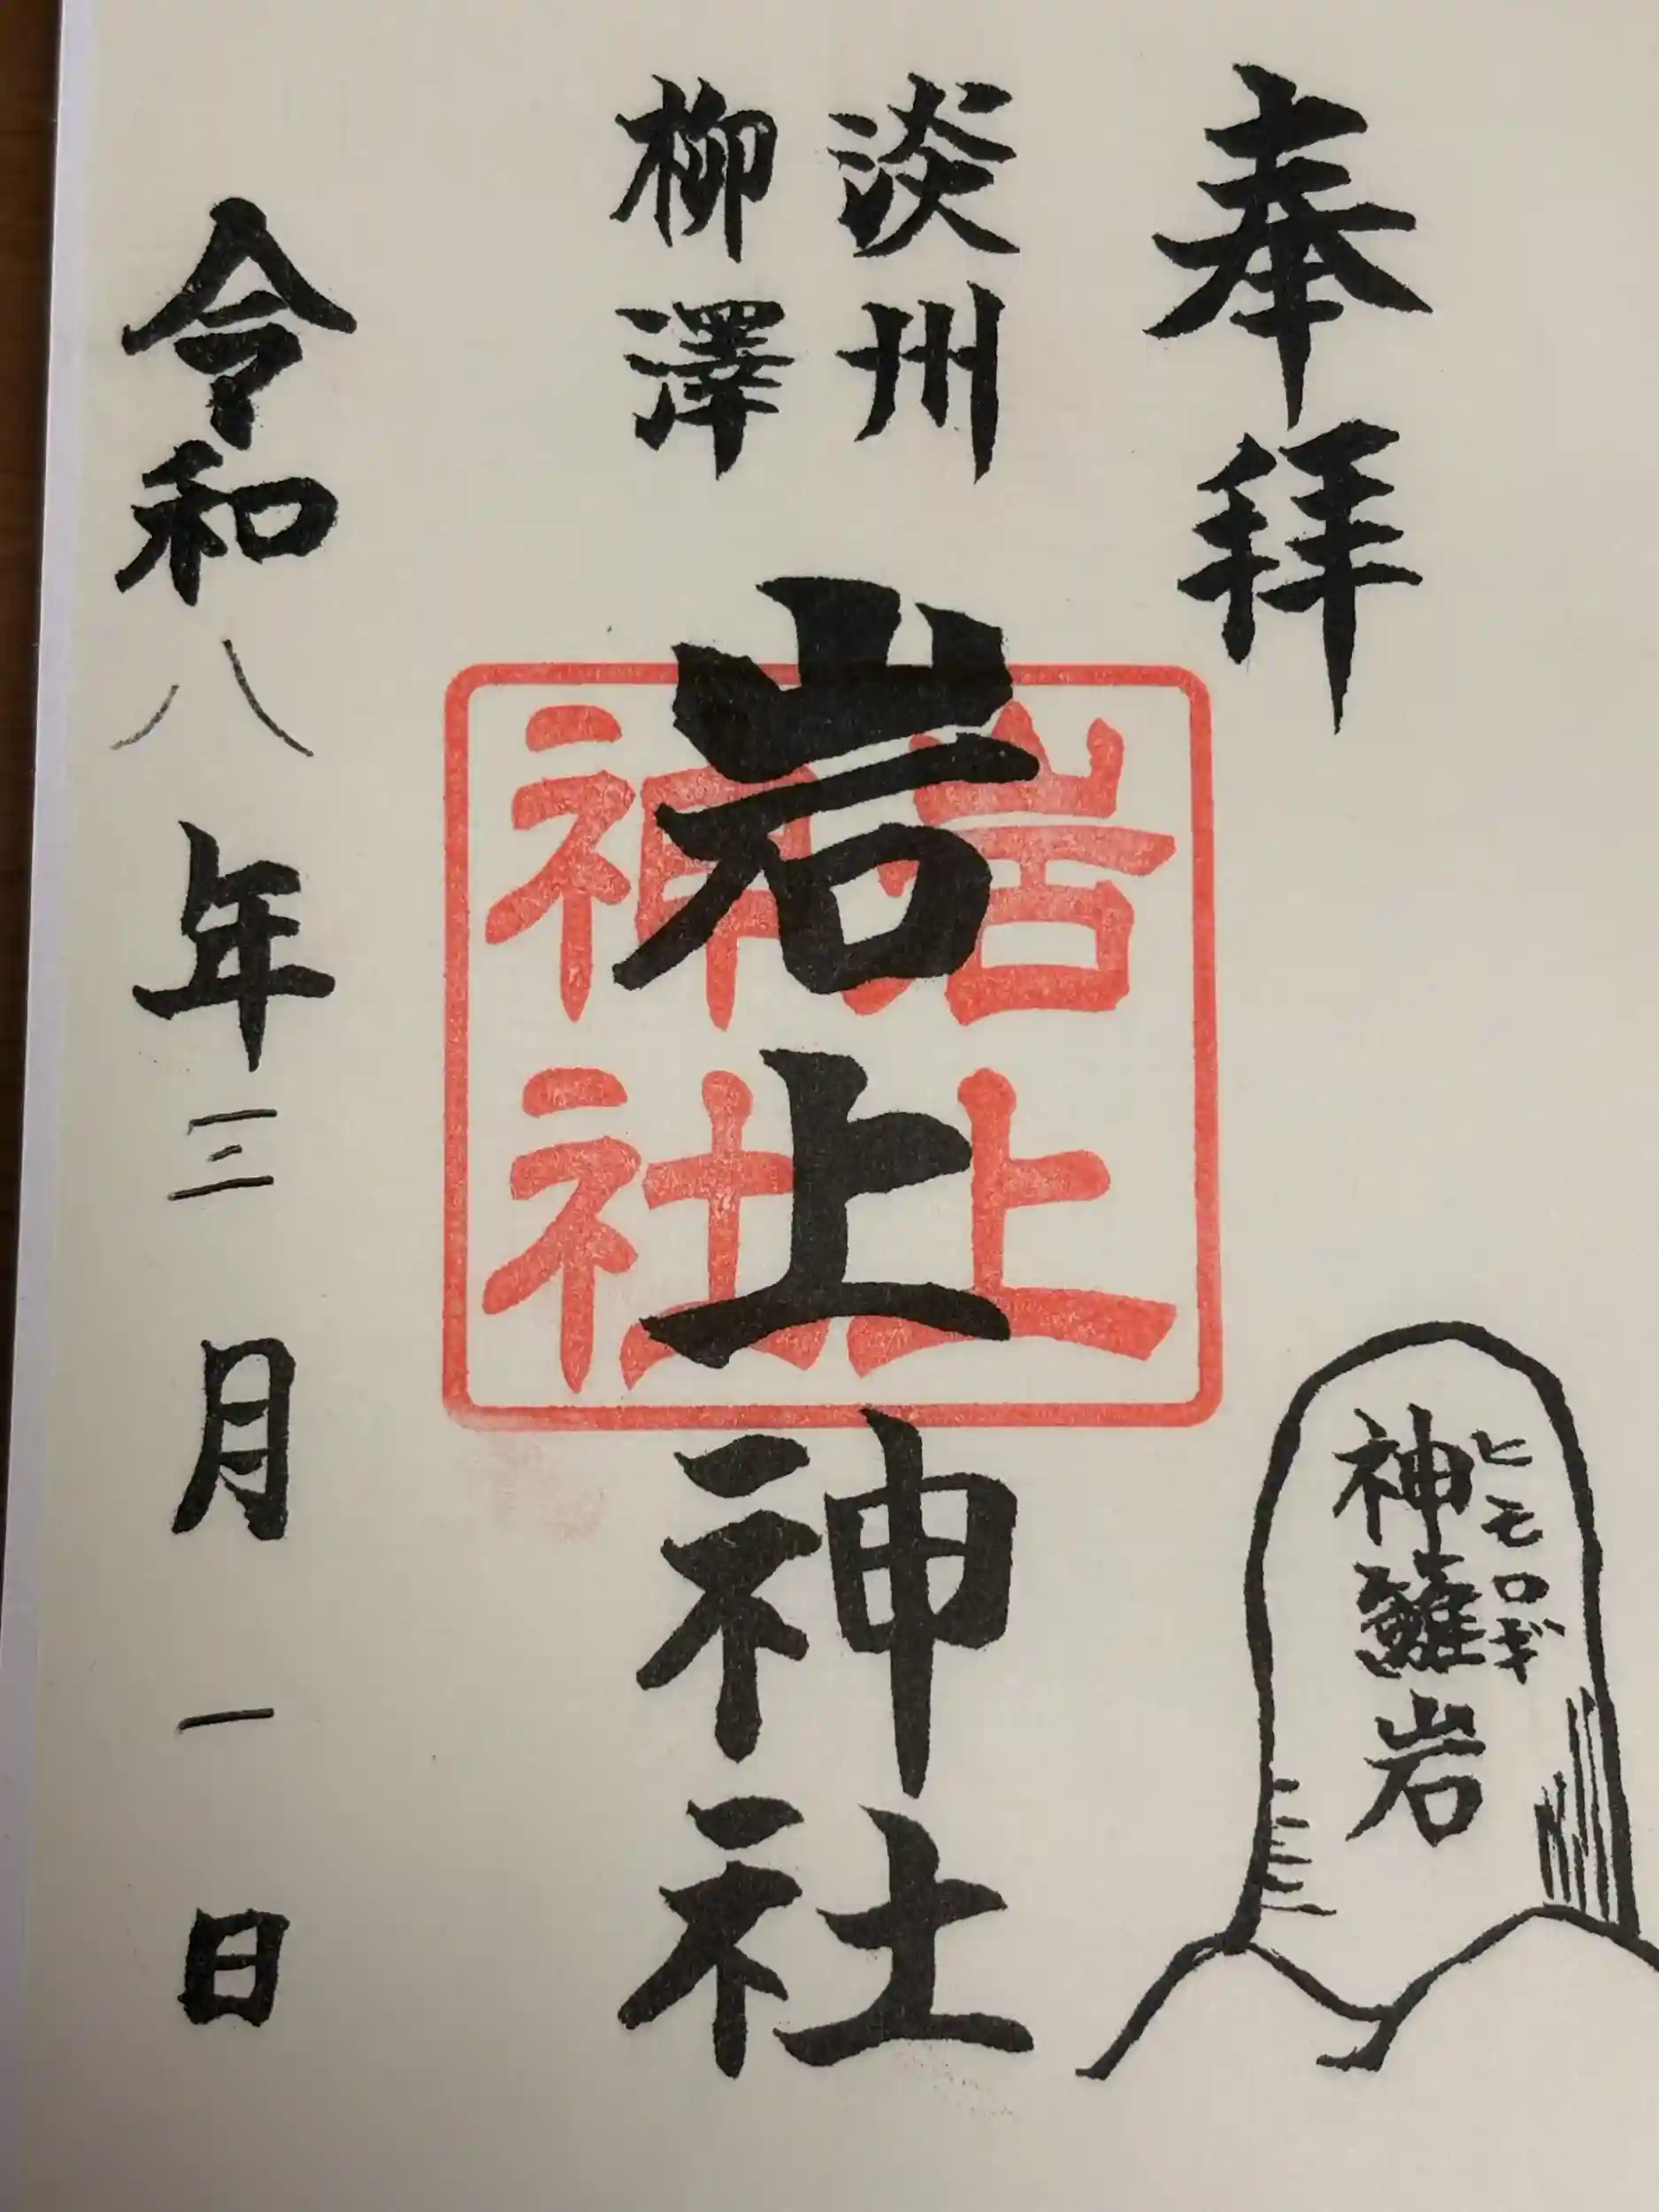 奉拝
淡州
柳澤
岩上神社
岩上
神社
ヒモロギ
神籬岩
令和八年三月一日